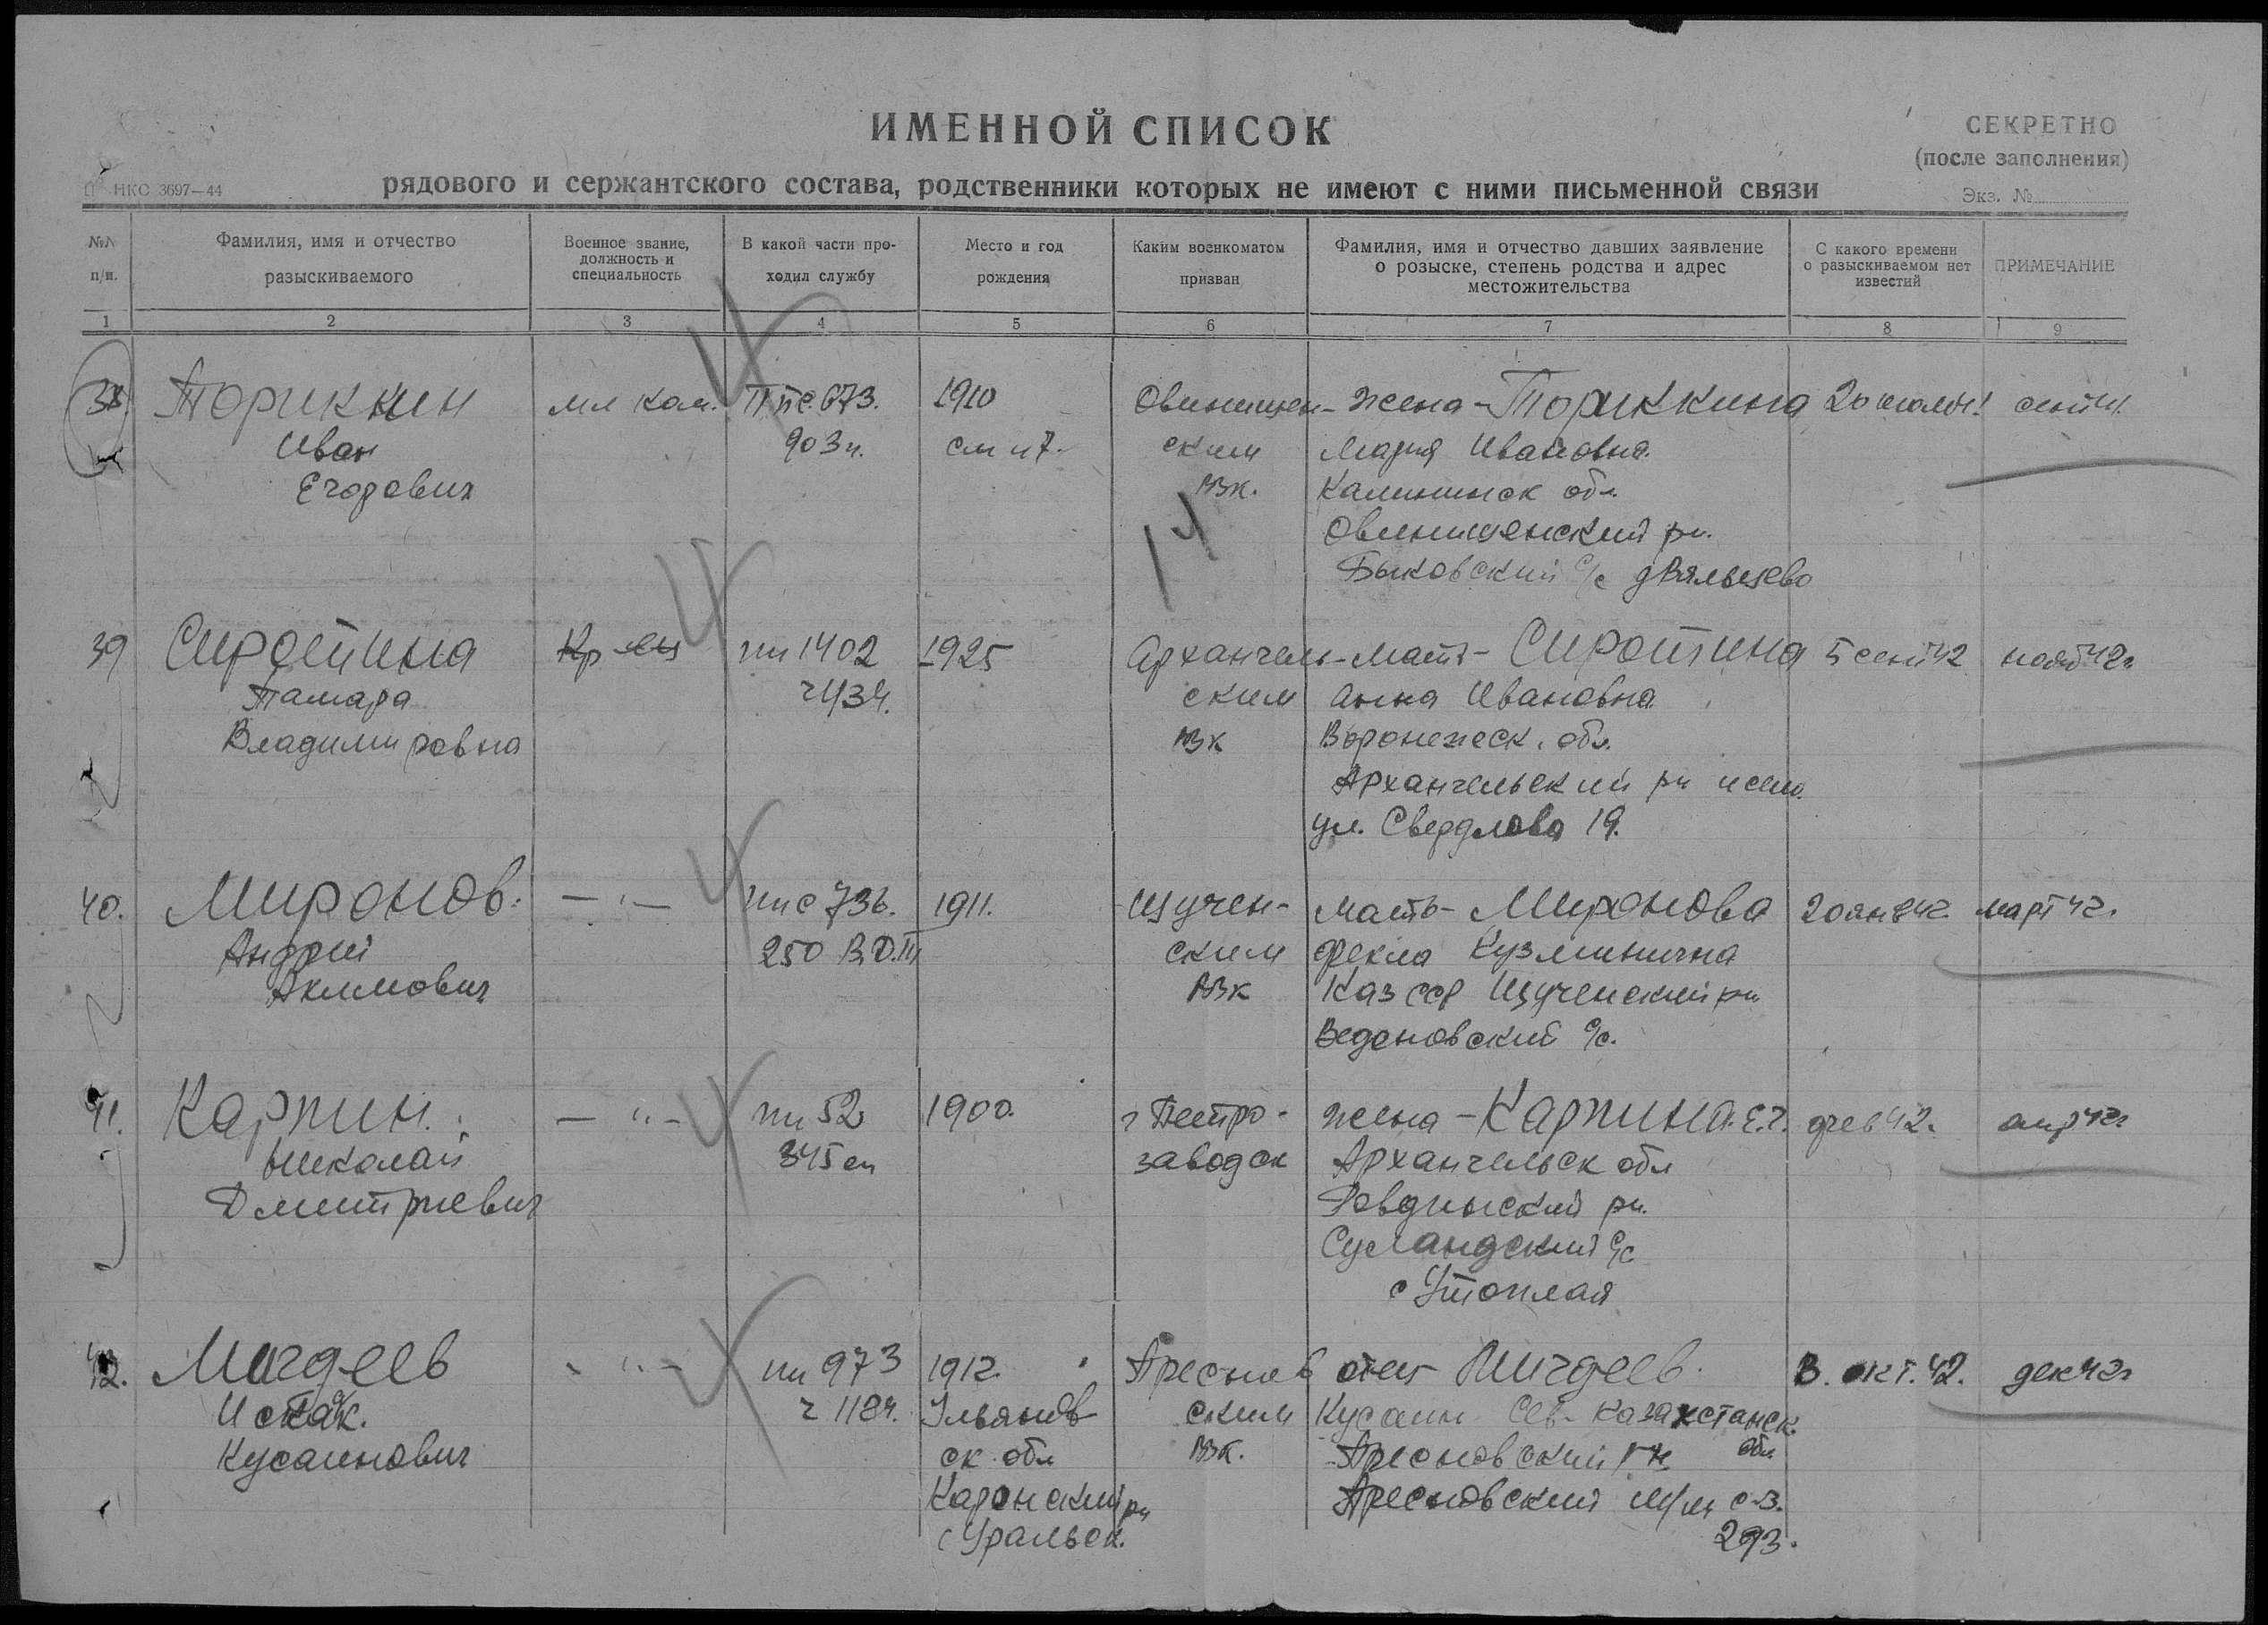 ИМЕННОЙ СПИСОК
рядового и сержантского состава, родственники которых не имеют с ними письменной связи
СЕКРЕТНО
(после заполнения)
Экз. №
НКО 3697—44
№№ п/п.
Фамилия, имя и отчество
разыскиваемого
Военное звание,
должность и
специальность
В какой части про-
ходил службу
Место и год
рождения
Каким военкоматом
призван
Фамилия, имя и отчество давших заявление
о розыске, степень родства и адрес
местожительства
С какого времени
о разыскиваемом нет
известий
ПРИМЕЧАНИЕ
1 2 3 4 5 6 7 8 9
38
Торичкин
Иван
Егорович
мл ком.
ппс 673.
903 ч.
1910
см п 7.
Овинищен-
ским
РВК.
жена - Торичкина
Мария Ивановна
Калининск обл.
Овинищенский рн.
Быковский с/с
39
Сиротина
Тамара
Владимировна
Кр-ец
пп 1402
ч 434.
1925
Архангель-
ским
РВК
мать - Сиротина
Анна Ивановна
Воронежск. обл.
Архангельский рн
ул. Свердлова 19.
5 сент 42
нояб 42г
40.
Миронов.
Андрей
Акимович
— " —
ппс 736.
250
1911.
Щучен-
ским
РВК
мать - Миронова
Фекла Кузминична
Каз сср Щученский рн
Веденовский с/с.
20 янв 42
март 42.
41.
Карпин.
Николай
Дмитриевич
— " —
пп 52
345 сп
1900.
г Петро-
заводск
жена - Карпина. Е.г.
Архангельск обл
Ровдинский рн.
Сусландский с/с
фев 42.
апр 42г
42.
Мигдеев
Исхак.
Кусаинович
- " -
пп 973
ч 1184.
1912.
Ульянов-
ск. обл
рн
с Уральск.
Преснов
ским
РВК.
отец Мигдеев.
Кусаин Сев-Казахстанск.
обл
Пресновский рн
Пресновский
293.
В. окт. 42.
дек 42г